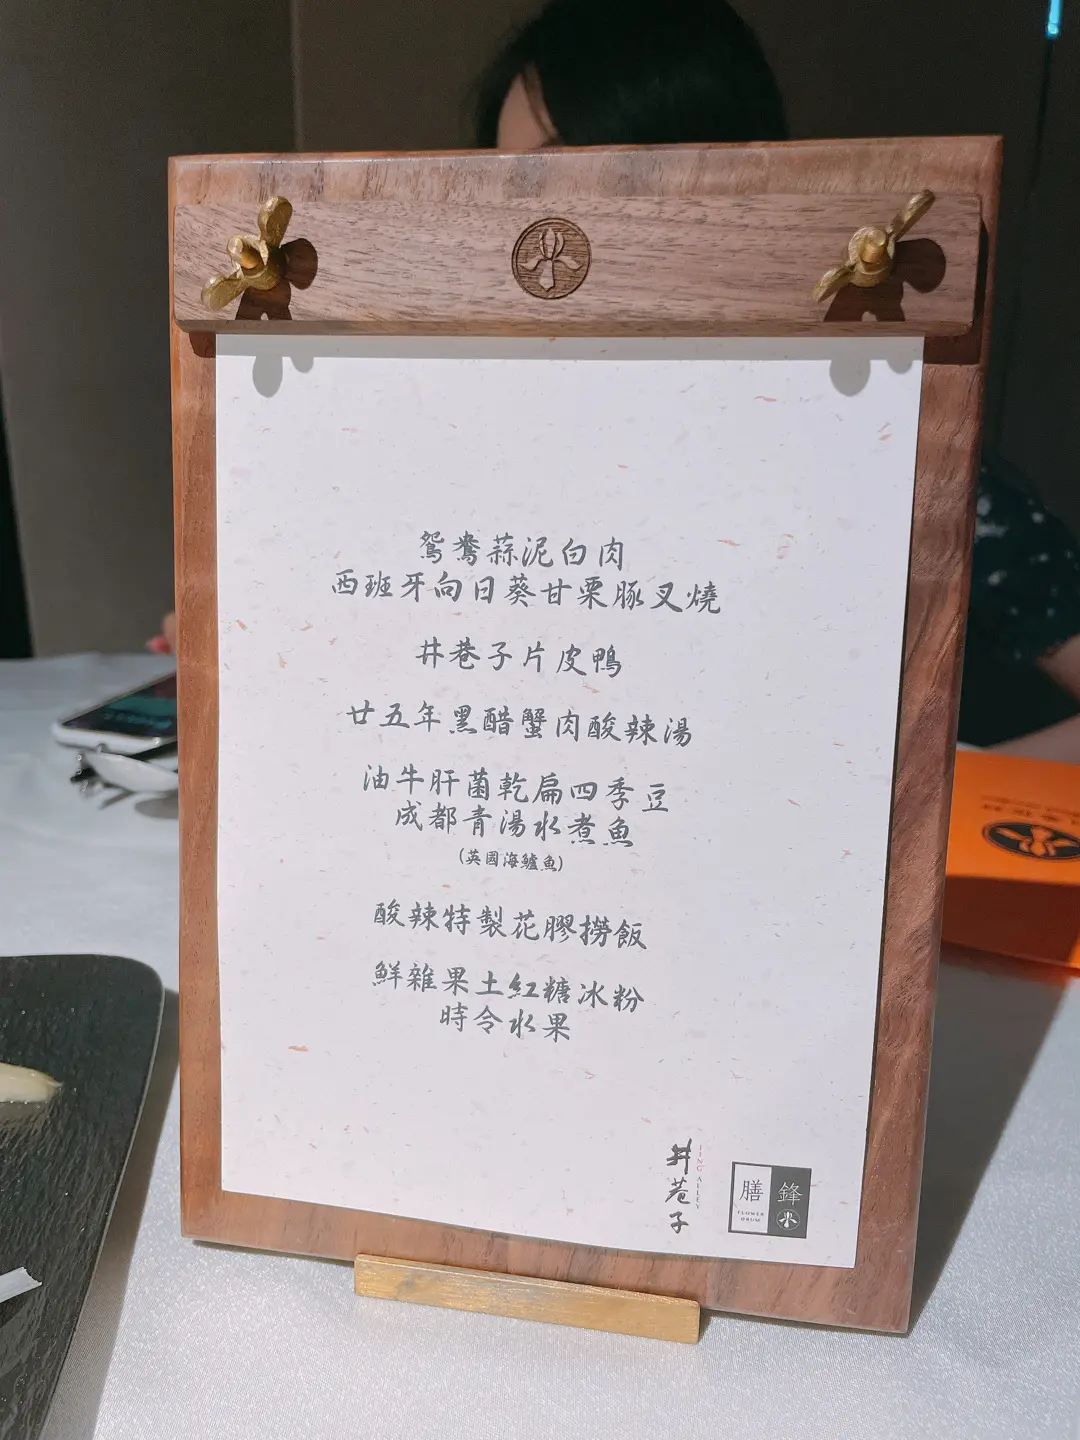 鴛鴦蒜泥白肉
西班牙向日葵甘栗豚叉燒
井巷子片皮鴨
廿五年黑醋蟹肉酸辣湯
油牛肝菌乾扁四季豆
成都青湯水煮魚
(英國海鱸魚)
酸辣特製花膠撈飯
鮮雜果土紅糖冰粉
時令水果
井巷子
JING ALLEY
膳
FLOWER
DRUM
鋒